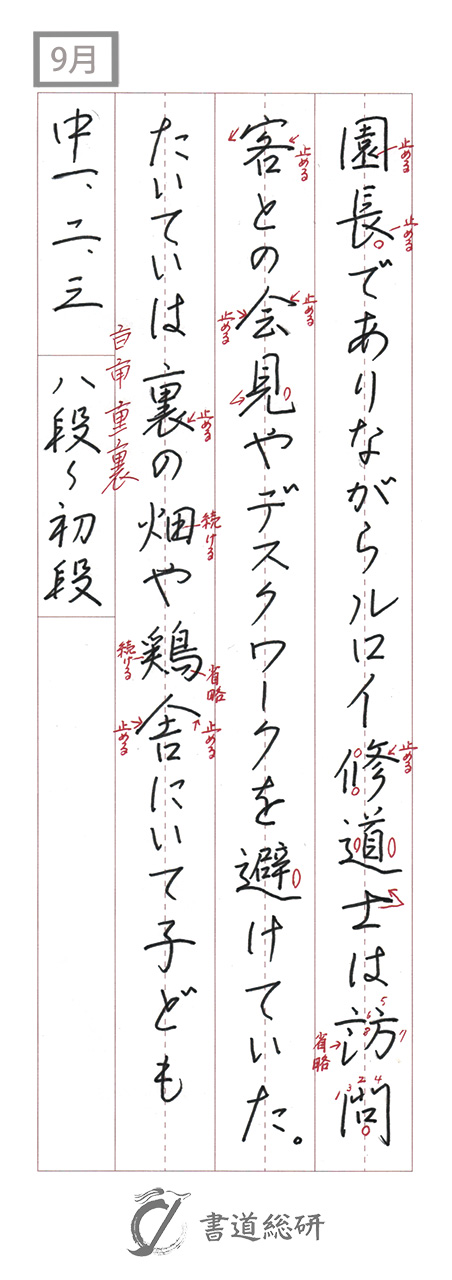 9月
園長でありながらルロイ修道士は訪問
客との会見やデスクワークを避けていた。
たいていは裏の畑や鶏舎にいて子ども
中一、二、三
八段〜初段
止める
止める
止める
省略
止める
止める
止める
止める
続ける
続ける
省略
止める
止める
重裏
書道総研